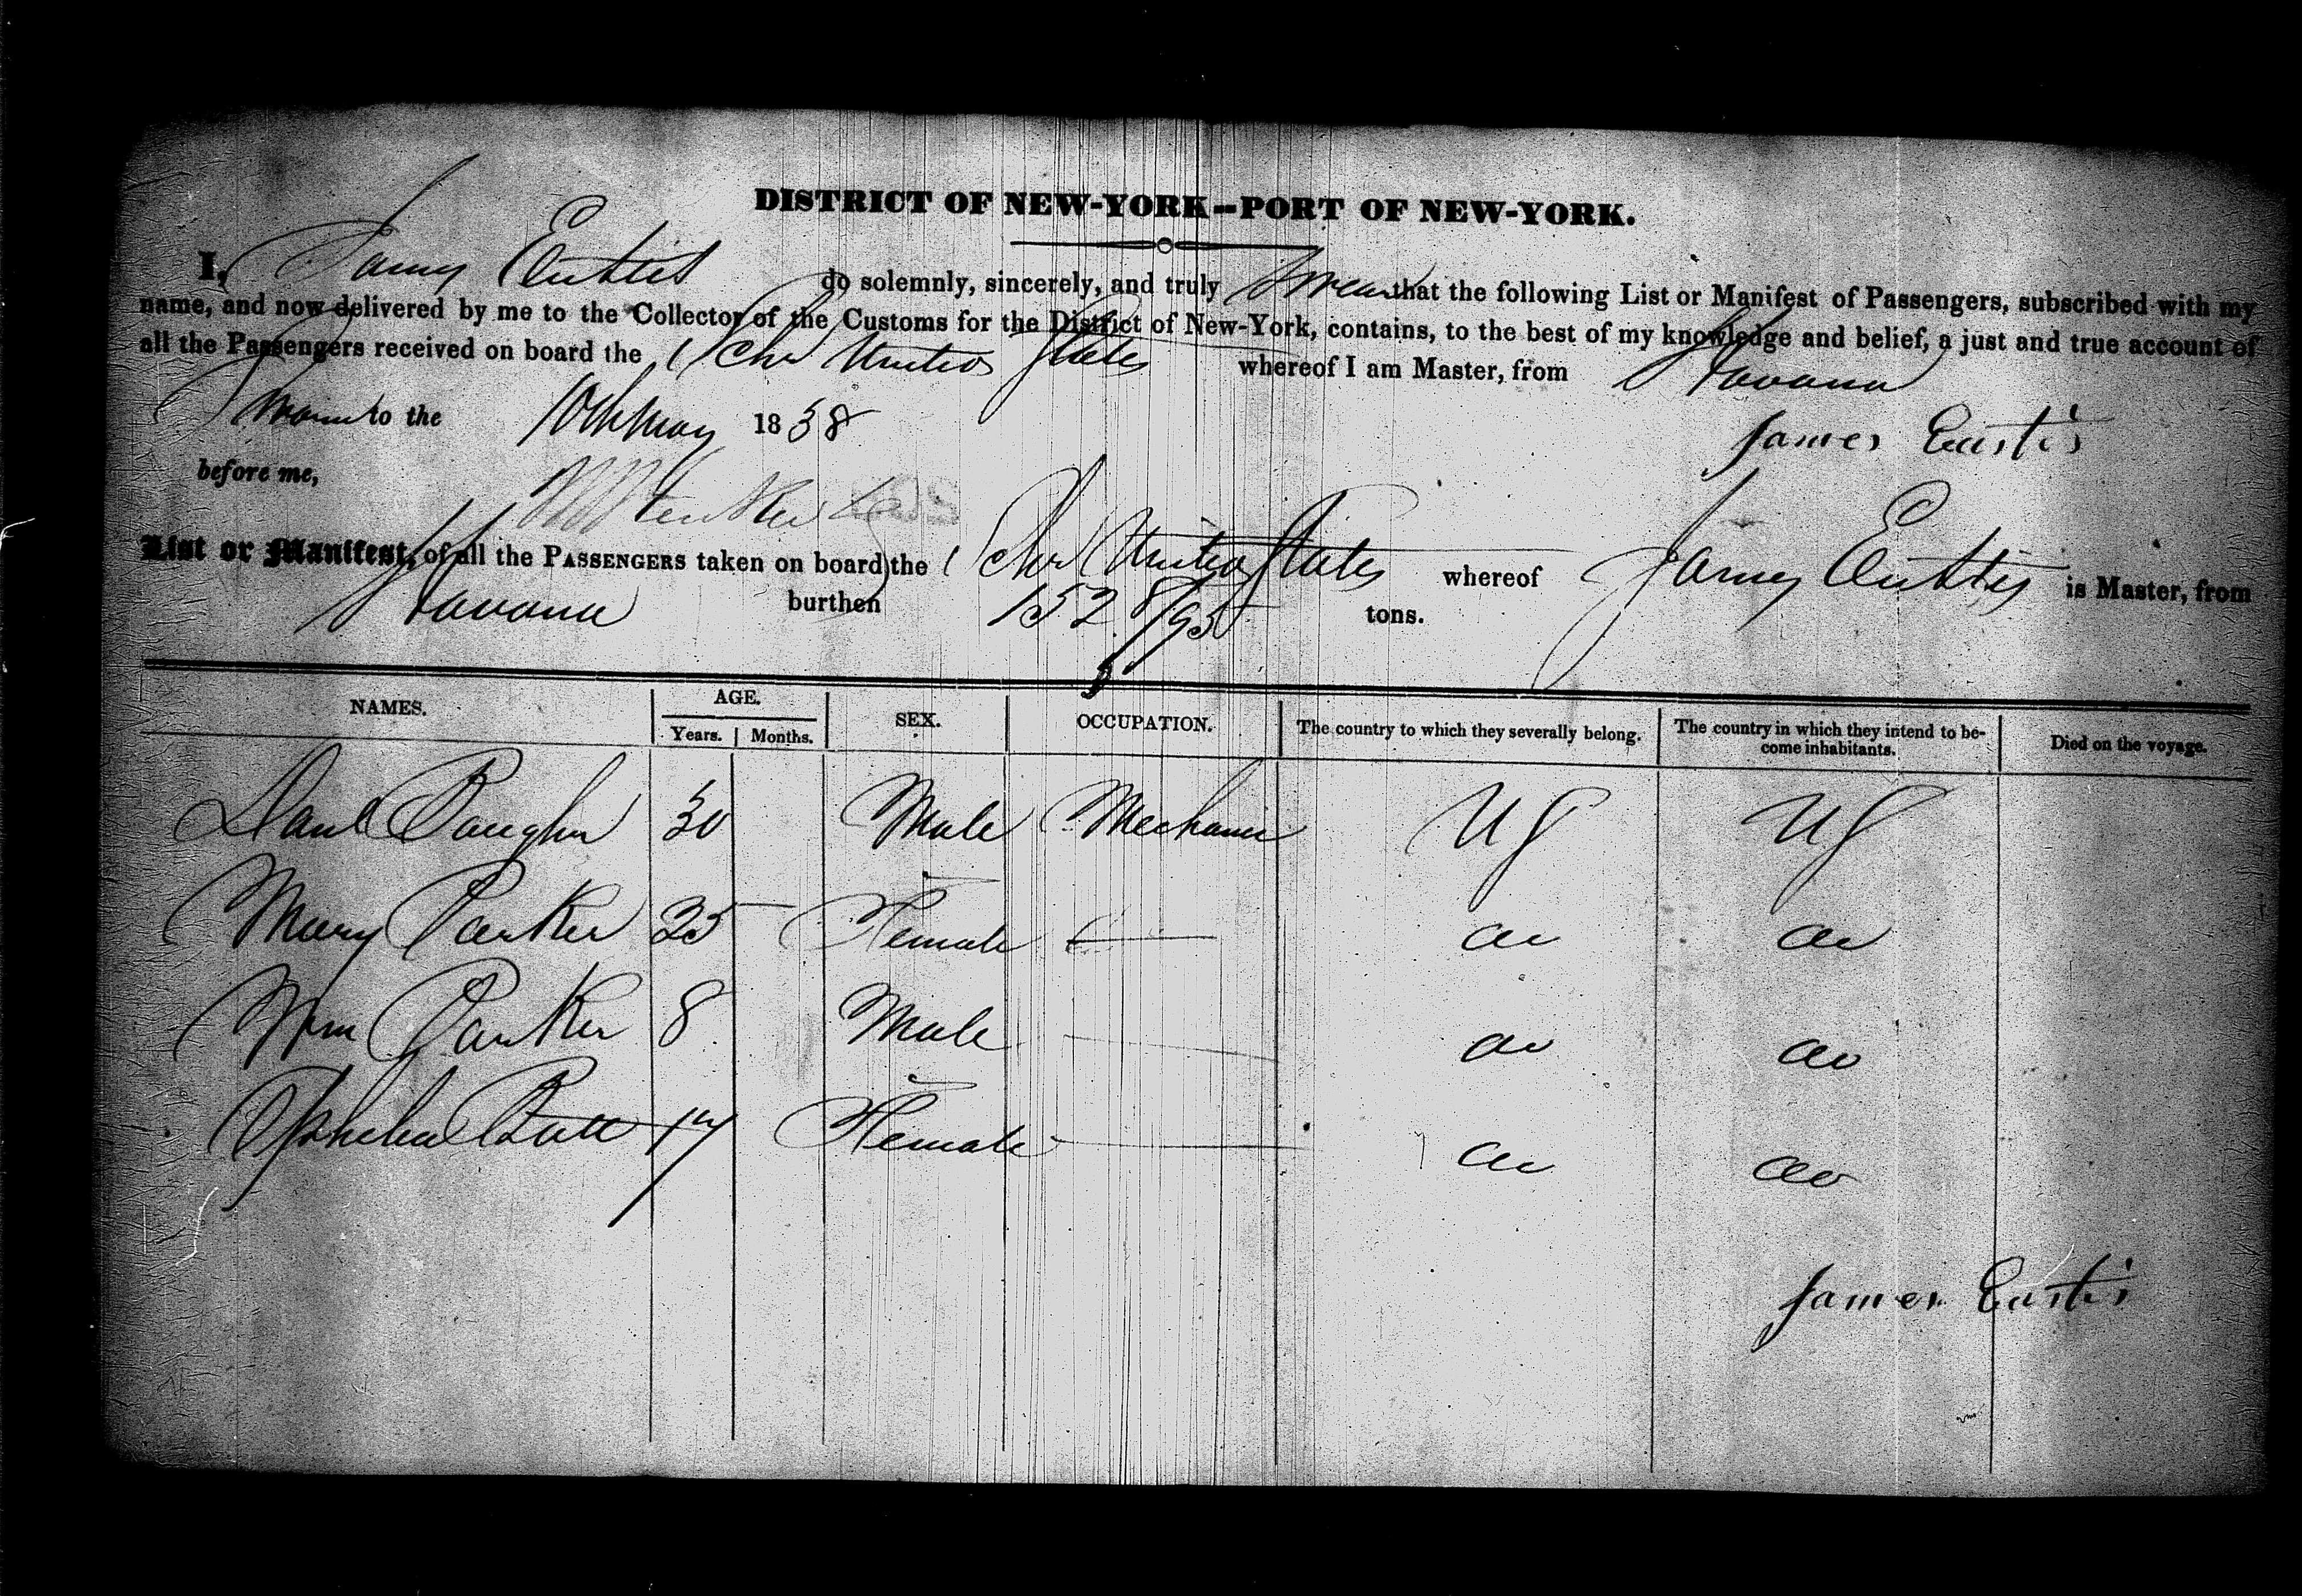 DISTRICT OF NEW-YORK--PORT OF NEW-YORK.
I, James Eustis do solemnly, sincerely, and truly Swear that the following List or Manifest of Passengers, subscribed with my
name, and now delivered by me to the Collector of the Customs for the District of New-York, contains, to the best of my knowledge and belief, a just and true account of
all the Passengers received on board the Schr United States whereof I am Master, from Havana
Sworn to the 10th May 1838 James Eustis
before me,
List or Manifest, of all the PASSENGERS taken on board the Schr United States whereof James Eustis is Master, from
Havana burthen 152 8/95 tons.
NAMES. AGE. SEX. OCCUPATION. The country to which they severally belong. The country in which they intend to be- Died on the voyage.
Years. Months. come inhabitants.
Danl 30 Male Mechanic US US
Mary Parker 25 Female do do
Wm Parker 8 Male do do
Ophelia 17 Female do do
James Eustis